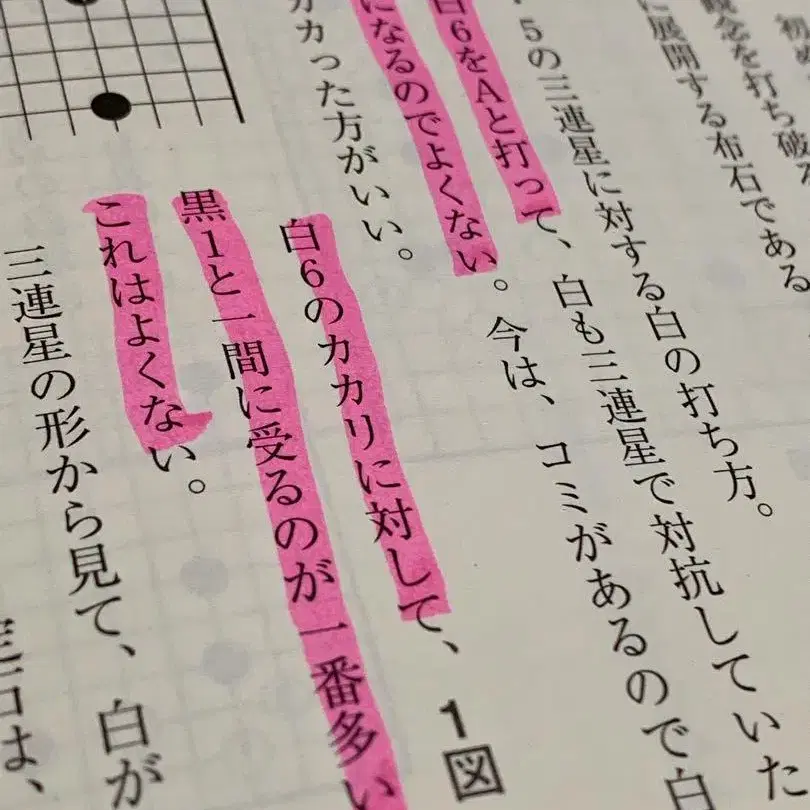 初め
念を打ち破る
に展開する布石である
5の三連星に対する白の打ち方。
白6をAと打って、白も三連星で対抗していた
になるのでよくない。今は、コミがあるので白
カカった方がいい。
白6のカカリに対して、1図
黒1と一間に受るのが一番多い
これはよくない。
三連星の形から見て、白が
は、